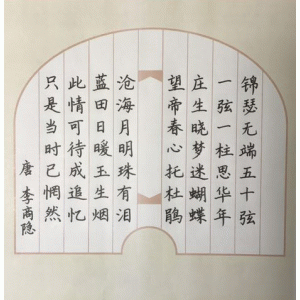 锦瑟无端五十弦
一弦一柱思华年
庄生晓梦迷蝴蝶
望帝春心托杜鹃
沧海月明珠有泪
蓝田日暖玉生烟
此情可待成追忆
只是当时已惘然
唐 李商隐